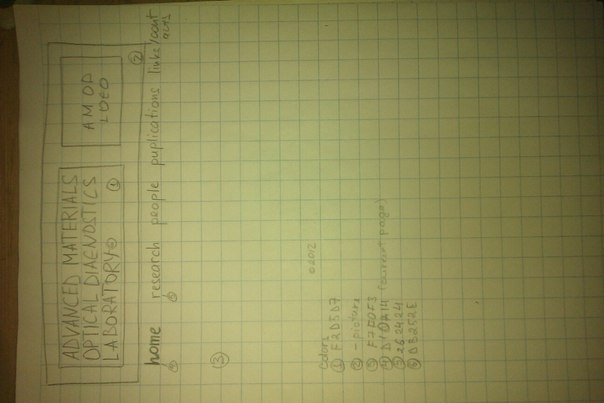 ADVANCED MATERIALS
OPTICAL DIAGNOSTICS
LABORATORY ⑥
①
AMOD
LOGO
②
home research people puplications links/cont
acts
④
⑤
③
©2012
colors
① F2D5D7
② - picture
③ F7F0F3
④ D10A14 (current page)
⑤ 262424
⑥ DB252E